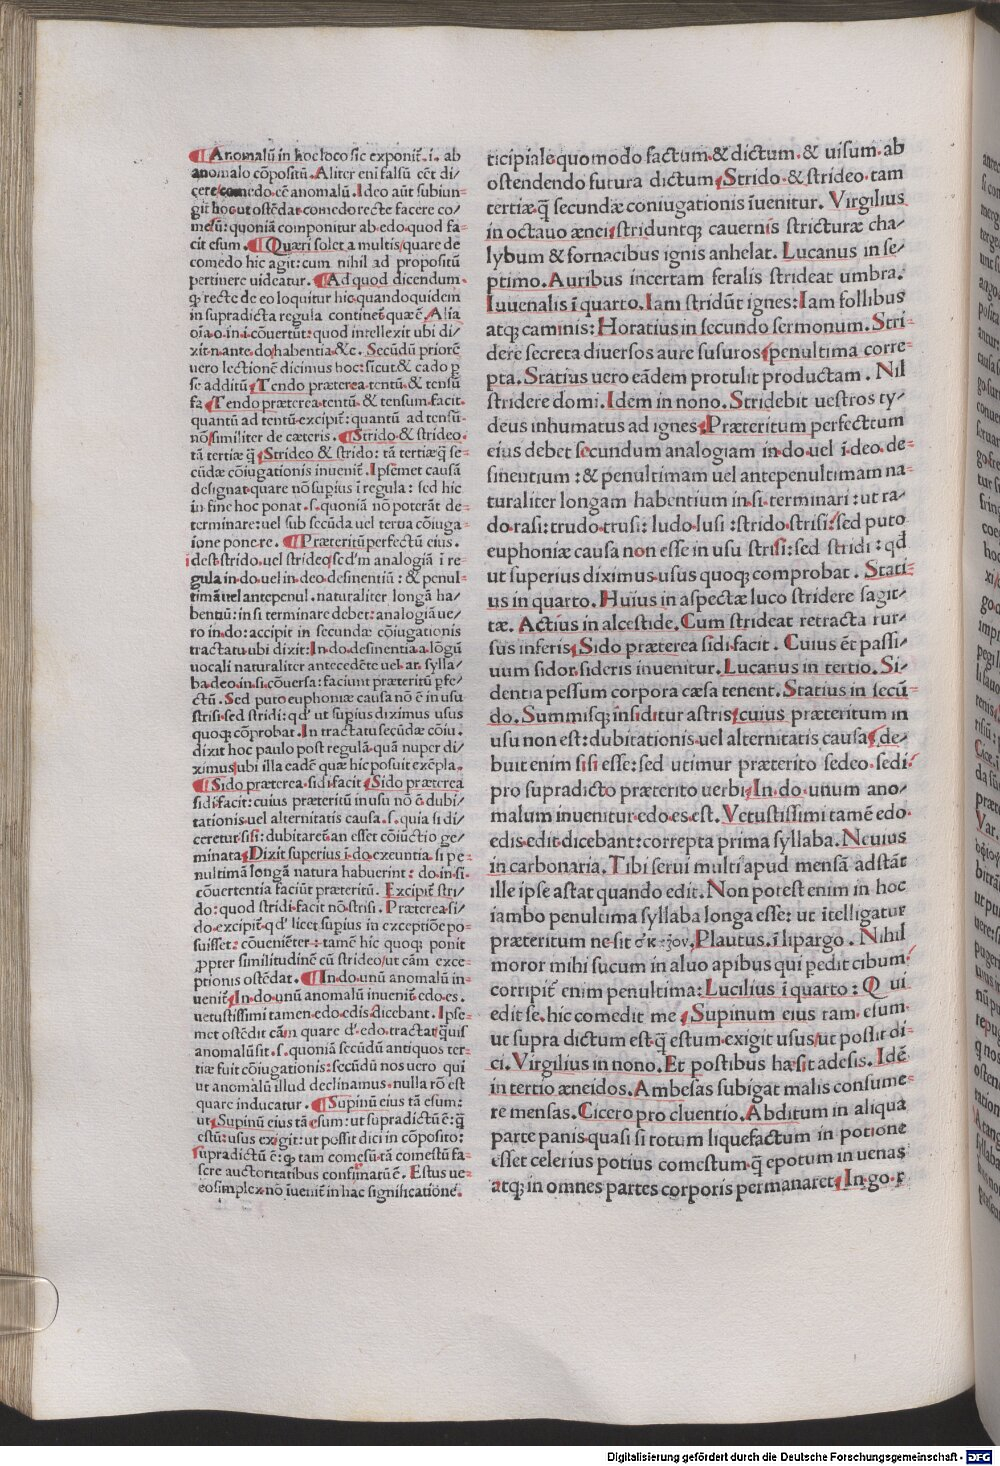 Anomalū in hoc loco sic exponit̄.i. ab
anomalo cōpositū. Aliter eni falsū cēt di/
cere comedo cē anomalū. Ideo aūt subiun-
git hoc ut ostēdat comedo recte facere co/
mesū: quoniā componitur ab edo. quod fa-
cit esum. Quæri solet a multis quare de
comedo hic agit: cum nihil ad propositū
pertinere uideatur. Ad quod dicendum.
q̨ recte de eo loquitur hic. quandoquidem
in supradicta regula continet̄ quæ ē Alia
oīa.o.in.i.cōuertūt: quod intellexit ubi di/
xit.n.ante.do.habentia.&c. Secūdū priorē
uero lectionē dicimus hoc: sicut & cado p̱
se additū Tendo præterea tentū. & tensū
fa Tendo præterea tentū. & tensum facit.
quantū ad tentū excipit̄: quantū ad tensū-
nō similiter de cæteris. Strido & strideo.
tā tertiæ q̄ Strideo & strido: tā tertiæ q̄ se-
cūdæ cōiugationis inuenit̄. Ipsemet causā
designat quare nō supius ī regula: sed hic
in fine hoc ponat. s. quoniā nō poterāt de-
terminare: uel sub secūda uel tertia cōiuga-
ione ponere. Præteritū perfectū eius.
i dest strido. uel strideo sed'm analogiā ī re-
gula in do. uel in deo desinentiū : & penul-
timā uel antepenul. naturaliter longā ha-
bentiū: in si terminare debet: analogiā ue/
ro in do: accipit in secundæ cōiugationis
tractatu ubi dixit: In do desinentia a lōgū
uocali naturaliter antecedēte uel ar. sylla/
ba deo in si cōuersa: faciunt præteritū p̱fe-
ctū. Sed puto euphoniæ causa nō ē in usu
strisi. sed stridi: qd' ut supius diximus usus
quoq̨ cōprobat. In tractatu secūdæ cōiu.
dixit hoc paulo post regulā. quā nuper di/
ximus ubi illa eadē quæ hic posuit exēpla.
Sido præterea. sidi facit Sido præterea
sidi facit: cuius præteritū in usu nō ē dubi/
tationis uel alternitatis causa. s. quia si di/
ceretur sisi: dubitaret̄ an esset cōiūctio ge/
minata Dixit superius ī.do.exeuntia. si pe-
nultimā longā natura habuerint: do.in.si.
cōuertentia faciūt præteritū. Excipit̄ stri/
do: quod stridi facit nō strisi. Præterea si/
do excipit̄ qd' licet supius in exceptiōe po-
suisset: cōueniēter: tamē hic quoq̨ ponit
ꝓpter similitudinē cū strideo ut cām exce-
ptionis ostēdat. In do unū anomalū in-
uenit̄ In do unū anomalū inuenit̄ edo es.
uetustissimi tamen edo edis dicebant. Ipse-
met ostēdit cām quare d'.edo tractat q̄uis
anomalū sit. s. quoniā secūdū antiquos ter-
tiæ fuit cōiugationis: secūdū nos uero qui
ut anomalū illud declinamus. nulla rō est
quare inducatur. Supinū eius tā esum:
ut Supinū eius tā esum: ut supradictū ē: q̄
estū: usus exigit: ut possit dici in cōposito:
supradictū ē: q̨ tam comesū. tā comestū fa-
cere auctoritatibus confirmatū ē. Estus ue-
eo simplex nō īuenit̄ in hac significatione.
ticipiale quo modo factum. & dictum. & uisum. ab
ostendendo futura dictum Strido. & strideo. tam
tertiæ. q̄ secundæ coniugationis īuenitur. Virgilius
in octauo ænei. striduntq̨ cauernis stricturæ cha-
lybum & fornacibus ignis anhelat. Lucanus in se/
ptimo. Auribus incertam feralis strideat umbra.
Iuuenalis ī quarto. Iam stridūt ignes: Iam follibus
atq̨ caminis: Horatius in secundo sermonum. Stri-
dere secreta diuersos aure susuros penultima corre-
pta. Statius uero eādem protulit productam. Nil
stridere domi. Idem in nono. Stridebit uestros ty-
deus inhumatus ad ignes Præteritum perfectum
eius debet secundum analogiam in do. uel ī deo. de-
sinentium : & penultimam uel antepenultimam na-
turaliter longam habentium in.si.terminari: ut ra/
do. rasi: trudo. trusi: ludo. lusi : strido. strisi: sed puto
euphoniæ causa non esse in usu strisi: sed stridi : qd
ut superius diximus usus quoq̨ comprobat. Stati-
us in quarto. Huius in aspectæ luco stridere sagit/
tæ. Actius in alcestide. Cum strideat retracta rur-
sus inferis Sido præterea sidi facit. Cuius ēt passi/
uum sidor. sideris inuenitur. Lucanus in tertio. Si-
dentia pessum corpora cæsa tenent. Statius in secū-
do. Summisq̨ īnsiditur astris cuius præteritum in
usu non est: dubitationis uel alternitatis causa de/
buit enim sisi esse: sed utimur præterito sedeo. sedi
pro supradicto præterito uerbi In.do.unum ano/
malum inuenitur edo es. est. Vetustissimi tamē edo
edis edit dicebant: correpta prima syllaba. Neuius
in carbonaria. Tibi serui multi apud mensā adstāt
ille ipse astat quando edit. Non potest enim in hoc
iambo penultima syllaba longa esse: ut itelligatur
præteritum ne sit Plautus. ī lipargo. Nihil
moror mihi sucum in aluo apibus qui pedit cibum
corripit̄ enim penultima: Lucilius ī quarto: Qui
edit se. hic comedit me Supinum eius tam esum.
ut supra dictum est q̄ estum. exigit usus ut possit di/
ci. Virgilius in nono. Et postibus hæsit adesis. Idē
in tertio æneidos. Ambesas subigat malis consume-
re mensas. Cicero pro cluentio. Abditum in aliqua
parte panis. quasi si totum liquefactum in potione
esset celerius potius comestum. q̄ epotum in uenas
atq̨ in omnes partes corporis permanaret. In.go.
Digitalisierung gefördert durch die Deutsche Forschungsgemeinschaft - DFG